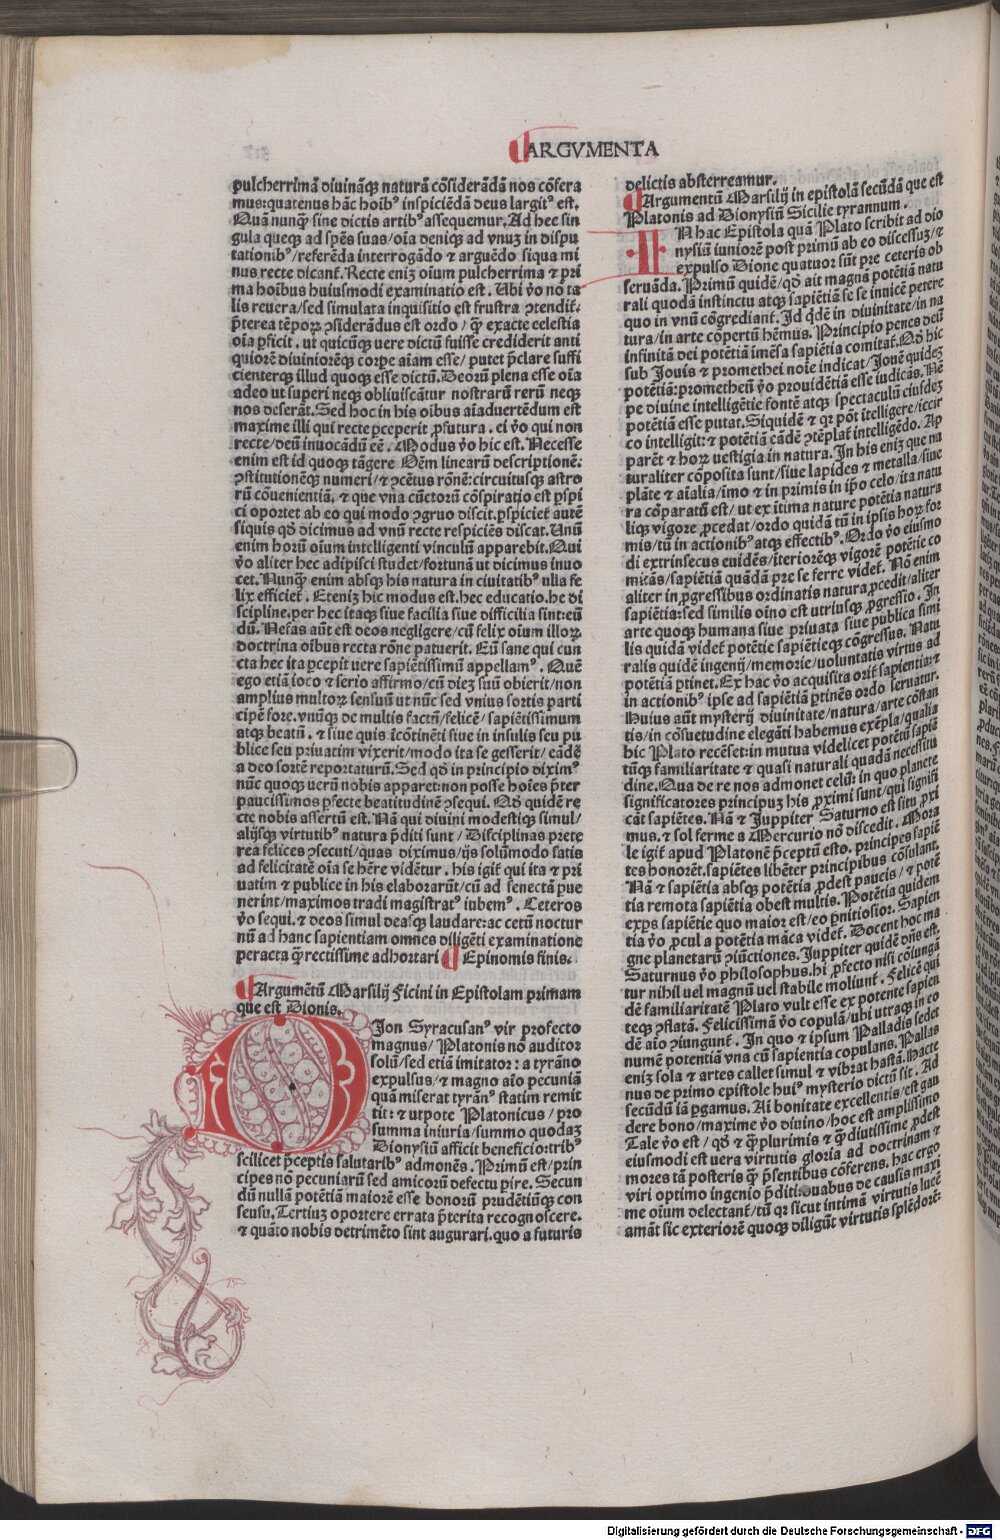 ARGVMENTA
pulcherrimā diuināqȝ naturā cōsiderādā nos cōfera
mus: quatenus hāc hoibꝰ inspiciēdā deus largitꝰ est.
Quā nunqȝ sine dictis artibꝰ assequemur. Ad hec sin
gula queqȝ ad spēs suas/oīa deniqȝ ad vnuȝ in dispu
tationibꝰ/referēda interrogādo ⁊ arguēdo siqua mi
nus recte dicant̄. Recte eniȝ oīum pulcherrima ⁊ pri
ma hoībus huiusmodi examinatio est. Ubi v̊o nō ta
lis reuera/sed simulata inquisitio est frustra ꝯtendit̄.
p̄terea tēporꝝ ꝯsiderādus est ordo/ qȝ exacte celestia
oīa ꝑficit. ut quicūqȝ uere dictū fuisse crediderit anti
quiorē diuiniorēqȝ corpe aīam esse/ putet p̄clare suffi
cienterqȝ illud quoqȝ esse dictū. Deorū plena esse oīa
adeo ut superi neqȝ obliuiscātur nostrarū rerū neqȝ
nos deserāt. Sed hoc in his oībus aīaduertēdum est
maxime illi qui recte ꝑceperit ꝓfutura. ei v̊o qui non
recte/deū inuocādū eē. Modus v̊o hic est. Necesse
enim est id quoqȝ tāgere Oēm linearū descriptionē:
ꝯstitutionēqȝ numeri/⁊ ꝯcētus rōnē: circuitusqȝ astro
rū cōuenientiā. ⁊ que vna cūctorū cōspiratio est ꝑspi
ci oportet ab eo qui modo ꝯgruo discit. ꝑspiciet autē
siquis qd̄ dicimus ad vnū recte respiciēs discat. Unū
enim horū oīum intelligenti vinculū apparebit. Qui
v̊o aliter hec adipisci studet/fortunā ut dicimus inuo
cet. Nunqȝ enim absqȝ his natura in ciuitatibꝰ ulla fe
lix efficiet̄. Eteniȝ hic modus est. hec educatio. he di
scipline. per hec itaqȝ siue facilia siue difficilia sint: eū
dū. Nefas aūt est deos negligere/cū felix oīum illorꝝ
doctrina oībus recta rōne patuerit. Eū sane qui cun
cta hec ita ꝑcepit uere sapiētissimū appellamꝰ. Quē
ego etiā ioco ⁊ serio affirmo/cū dieȝ suū obierit/non
amplius multorꝝ sensuū ut nūc sed vnius sortis parti
cipē fore. vnūqȝ de multis factū/felicē/ sapiētissimum
atqȝ beatū. ⁊ siue quis ī cōtinēti siue in insulis seu pu
blice seu priuatim vixerit/modo ita se gesserit/ eādē
a deo sortē reportaturū. Sed qd̄ in principio diximꝰ
nūc quoqȝ uerū nobis apparet: non posse hoīes p̄ter
paucissimos ꝑfecte beatitudinē ꝯsequi. Qd̄ quidē re
cte nobis assertū est. Nā qui diuini modestiqȝ simul/
alijsqȝ virtutibꝰ natura p̄diti sunt/ Disciplinas prete
rea felices ꝯsecuti/quas diximus/ijs solūmodo satis
ad felicitatē oīa se hr̄e vidētur. his igit̄ qui ita ⁊ pri
uatim ⁊ publice in his elaborarūt/cū ad senectā pue
nerint/maximos tradi magistratꝰ iubemꝰ. Ceteros
v̊o sequi. ⁊ deos simul deasqȝ laudare: ac cetū noctur
nū ad hanc sapientiam omnes diligēti examinatione
peracta qȝ rectissime adhortari. Epinomis finis.
Argumētū Marsilij Ficini in Epistolam primam
que est Dionis.
DIon Syracusanꝰ vir profecto
magnus/ Platonis nō auditor
solū/sed etiā imitator: a tyrāno
expulsus/⁊ magno aīo pecuniā
quā miserat tyrānꝰ statim remit
tit: ⁊ utpote Platonicus/ pro
summa iniuria/summo quodaȝ
Dionysiū afficit beneficio: tribꝰ
scilicet p̄ceptis salutaribꝰ admonēs. Primū est/prin
cipes nō pecuniarū sed amicorū defectu pire. Secun
dū nullā potētiā maiorē esse bonorū prudētiūqȝ con
sensu. Tertiuȝ oportere errata p̄terita recognoscere.
⁊ quāto nobis detrimēto sint augurari. quo a futuris
delictis absterreamur.
Argumentū Marsilij in epistolā secūdā que est
Platonis ad Dionysiū Sicilie tyrannum.
IN hac Epistola quā Plato scribit ad dio
nysiū iuniorē post primū ab eo discessuȝ/⁊
expulso Dione quatuor sūt pre ceteris ob
seruāda. Primū quidē/qd̄ ait magnā potētiā natu
rali quodā instinctu atqȝ sapiētiā se se inuicē petere
quo in vnū cōgrediant̄. Id qdē in diuinitate/in na
tura/in arte cōpertū hēmus. Principio penes deū
infinitā dei potētiā imēsa sapiētia comitat̄. Qd̄ hic
sub Jouis ⁊ promethei noīe indicat/Jouē quideȝ
potētiā: prometheū v̊o prouidētiā esse iudicās. Nē
pe diuine intelligētie fontē atqȝ spectaculū eiusdeȝ
potētiā esse putat. Siquidē ⁊ qꝛ pōt ītelligere/iccir
co intelligit: ⁊ potētiā cādē ꝯtēplat̄ intelligēdo. Ap
parēt ⁊ horꝝ uestigia in natura. In his eniȝ que na
turaliter cōposita sunt/siue lapides ⁊ metalla/siue
plāte ⁊ aīalia/īmo ⁊ in primis in ip̄o celo/ita natu
ra cōparatū est/ ut ex ītima nature potētia natura
liqȝ vigore ꝓcedat/ordo quidā tū in ipsis horꝝ for
mis/tū in actionibꝰ atqȝ effectibꝰ. Ordo v̊o eiusmo
di extrinsecus euidēs/īteriorēqȝ vigorē potētie co
mitās/sapiētiā quādā pre se ferre videt̄. Nō enim
aliter in ꝓgressibus ordinatis natura ꝓcedit/aliter
sapiētia: sed similis oīno est utriusqȝ ꝓgressio. In
arte quoqȝ humana siue priuata siue publica simi
lis quidā videt̄ potētie sapiētieqȝ cōgressus. Natu
ralis quidē ingenij/memorie/uoluntatis virtus ad
potētiā ꝑtinet. Ex hac v̊o acquisita orit̄ sapientia: ⁊
in actionibꝰ ipse ad sapiētiā ꝑtinēs ordo seruatur.
Huius aūt mysterij diuinitate/natura/arte cōstan
tis/in cōsuetudine elegāti habemus exēpla/qualia
hic Plato recēset: in mutua videlicet potētū sapiē
tūqȝ familiaritate ⁊ quasi naturali quadā necessitu
dine. Qua de re nos admonet celū: in quo planete
significatores principuȝ his ꝓximi sunt/qui signifi
cāt sapiētes. Nā ⁊ Juppiter Saturno est situ ꝓxi
mus. ⁊ sol ferme a Mercurio nō discedit. Mora
le igit̄ apud Platonē p̄ceptū esto. principes sapiē
tes honorēt. sapiētes libēter principibus cōsulant.
Nā ⁊ sapiētia absqȝ potētia ꝓdest paucis/ ⁊ potē
tia remota sapiētia obest multis. Potētia quidem
exꝑs sapiētie quo maior est/eo p̄nitiosior. Sapien
tia v̊o ꝓcul a potētia māca videt̄. Docent hoc ma
gne planetarū ꝯiūctiones. Juppiter quidē dn̄s est.
Saturnus v̊o philosophus. hi ꝓfecto nisi cōiungā
tur nihil uel magnū uel stabile moliunt̄. Felicē qui
dē familiaritatē Plato vult esse ex potente sapien
teqȝ ꝯflatā. Felicissimā v̊o copulā/ ubi utraqȝ in eo
dē aīo ꝯiungunt̄. In quo ⁊ ipsum Palladis sedet
numē potentiā vna cū sapientia copulans. Pallas
eniȝ sola ⁊ artes callet simul ⁊ vibrat hastā. Hacte
nus de primo epistole huiꝰ mysterio dictū sit. Ad
secūdū iā pergamus. Ai bonitate excellentis/est gau
dere bono/maxime v̊o diuino/hoc est amplissimo
Tale v̊o est/ qd̄ ⁊ qȝplurimis ⁊ qȝ diutissime ꝓdest
eiusmodi est uera virtutis gloria ad doctrinam ⁊
mores tā posteris qȝ p̄sentibus cōferens. hac ergo
viri optimo ingenio p̄diti duabus de causis maxi
me oīum delectant̄/tū qꝛ sicut intimā virtutis lucē
amāt sic exteriorē quoqȝ diligūt virtutis splēdorē:
Digitalisierung gefördert durch die Deutsche Forschungsgemeinschaft - DFG